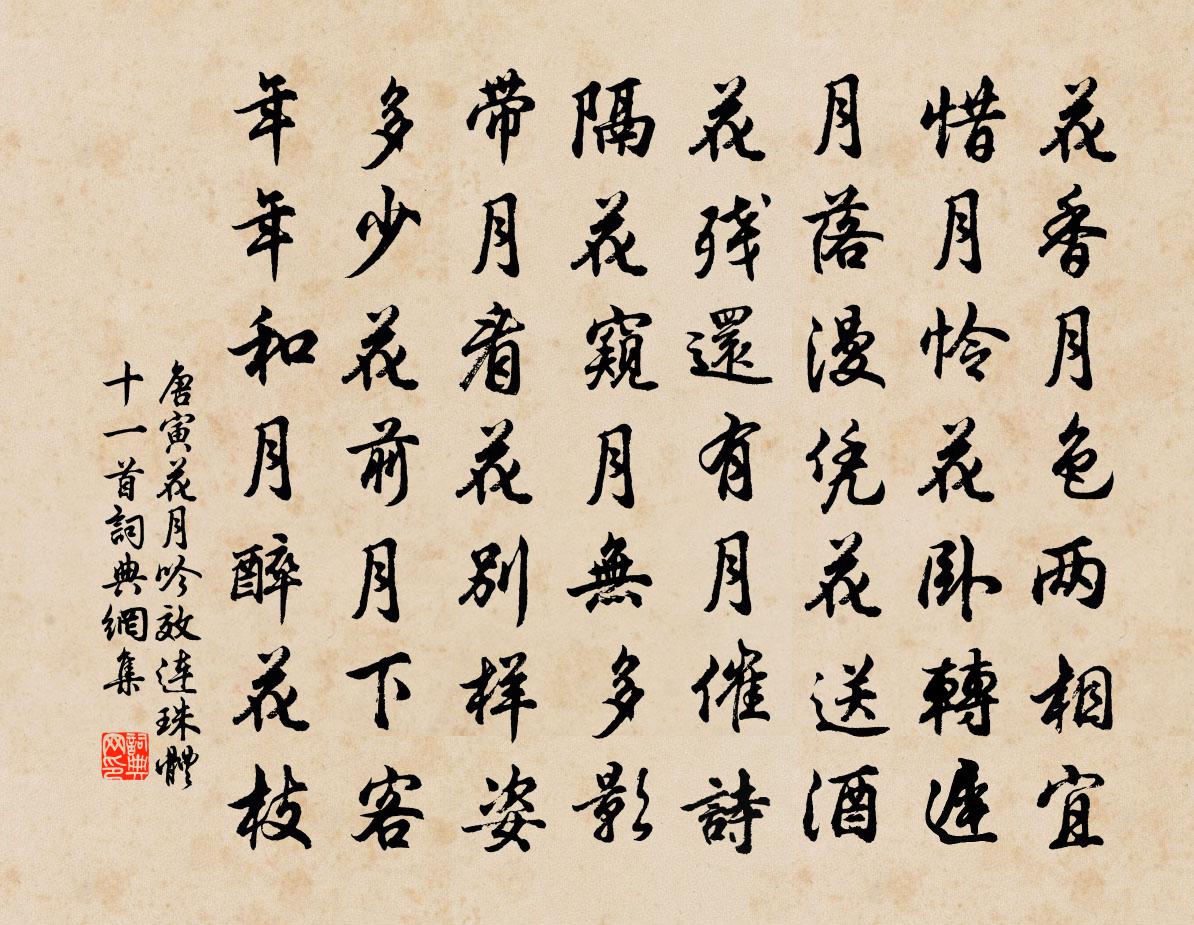 花香月色两相宜
惜月怜花卧轉遲
月落漫凭花送酒
花残還有月催詩
隔花窺月無多影
带月看花别样姿
多少花前月下客
年年和月醉花枝
唐寅花月吟效连珠體
十一首詞典網集
詞典
网印